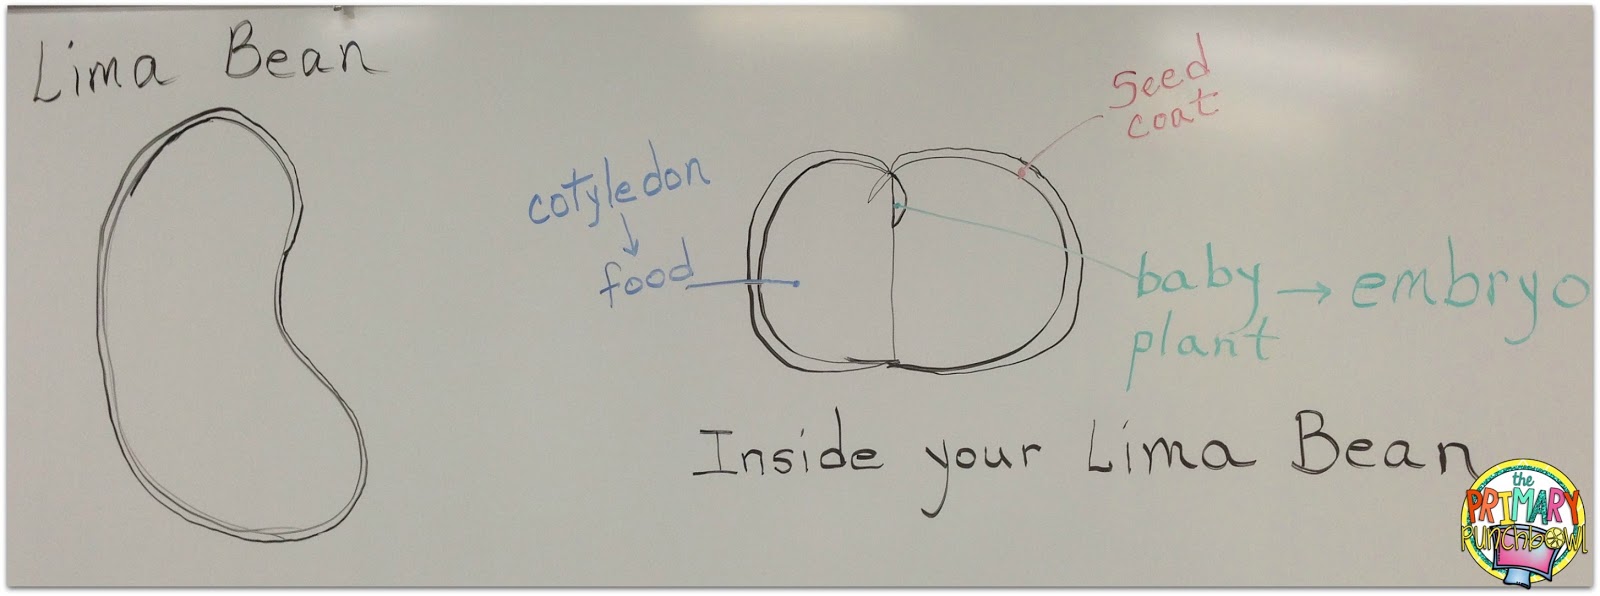 Lima Bean
Seed
coat
cotyledon
food
baby → embryo
plant
Inside your Lima Bean
the
PRIMARY
Punchbowl